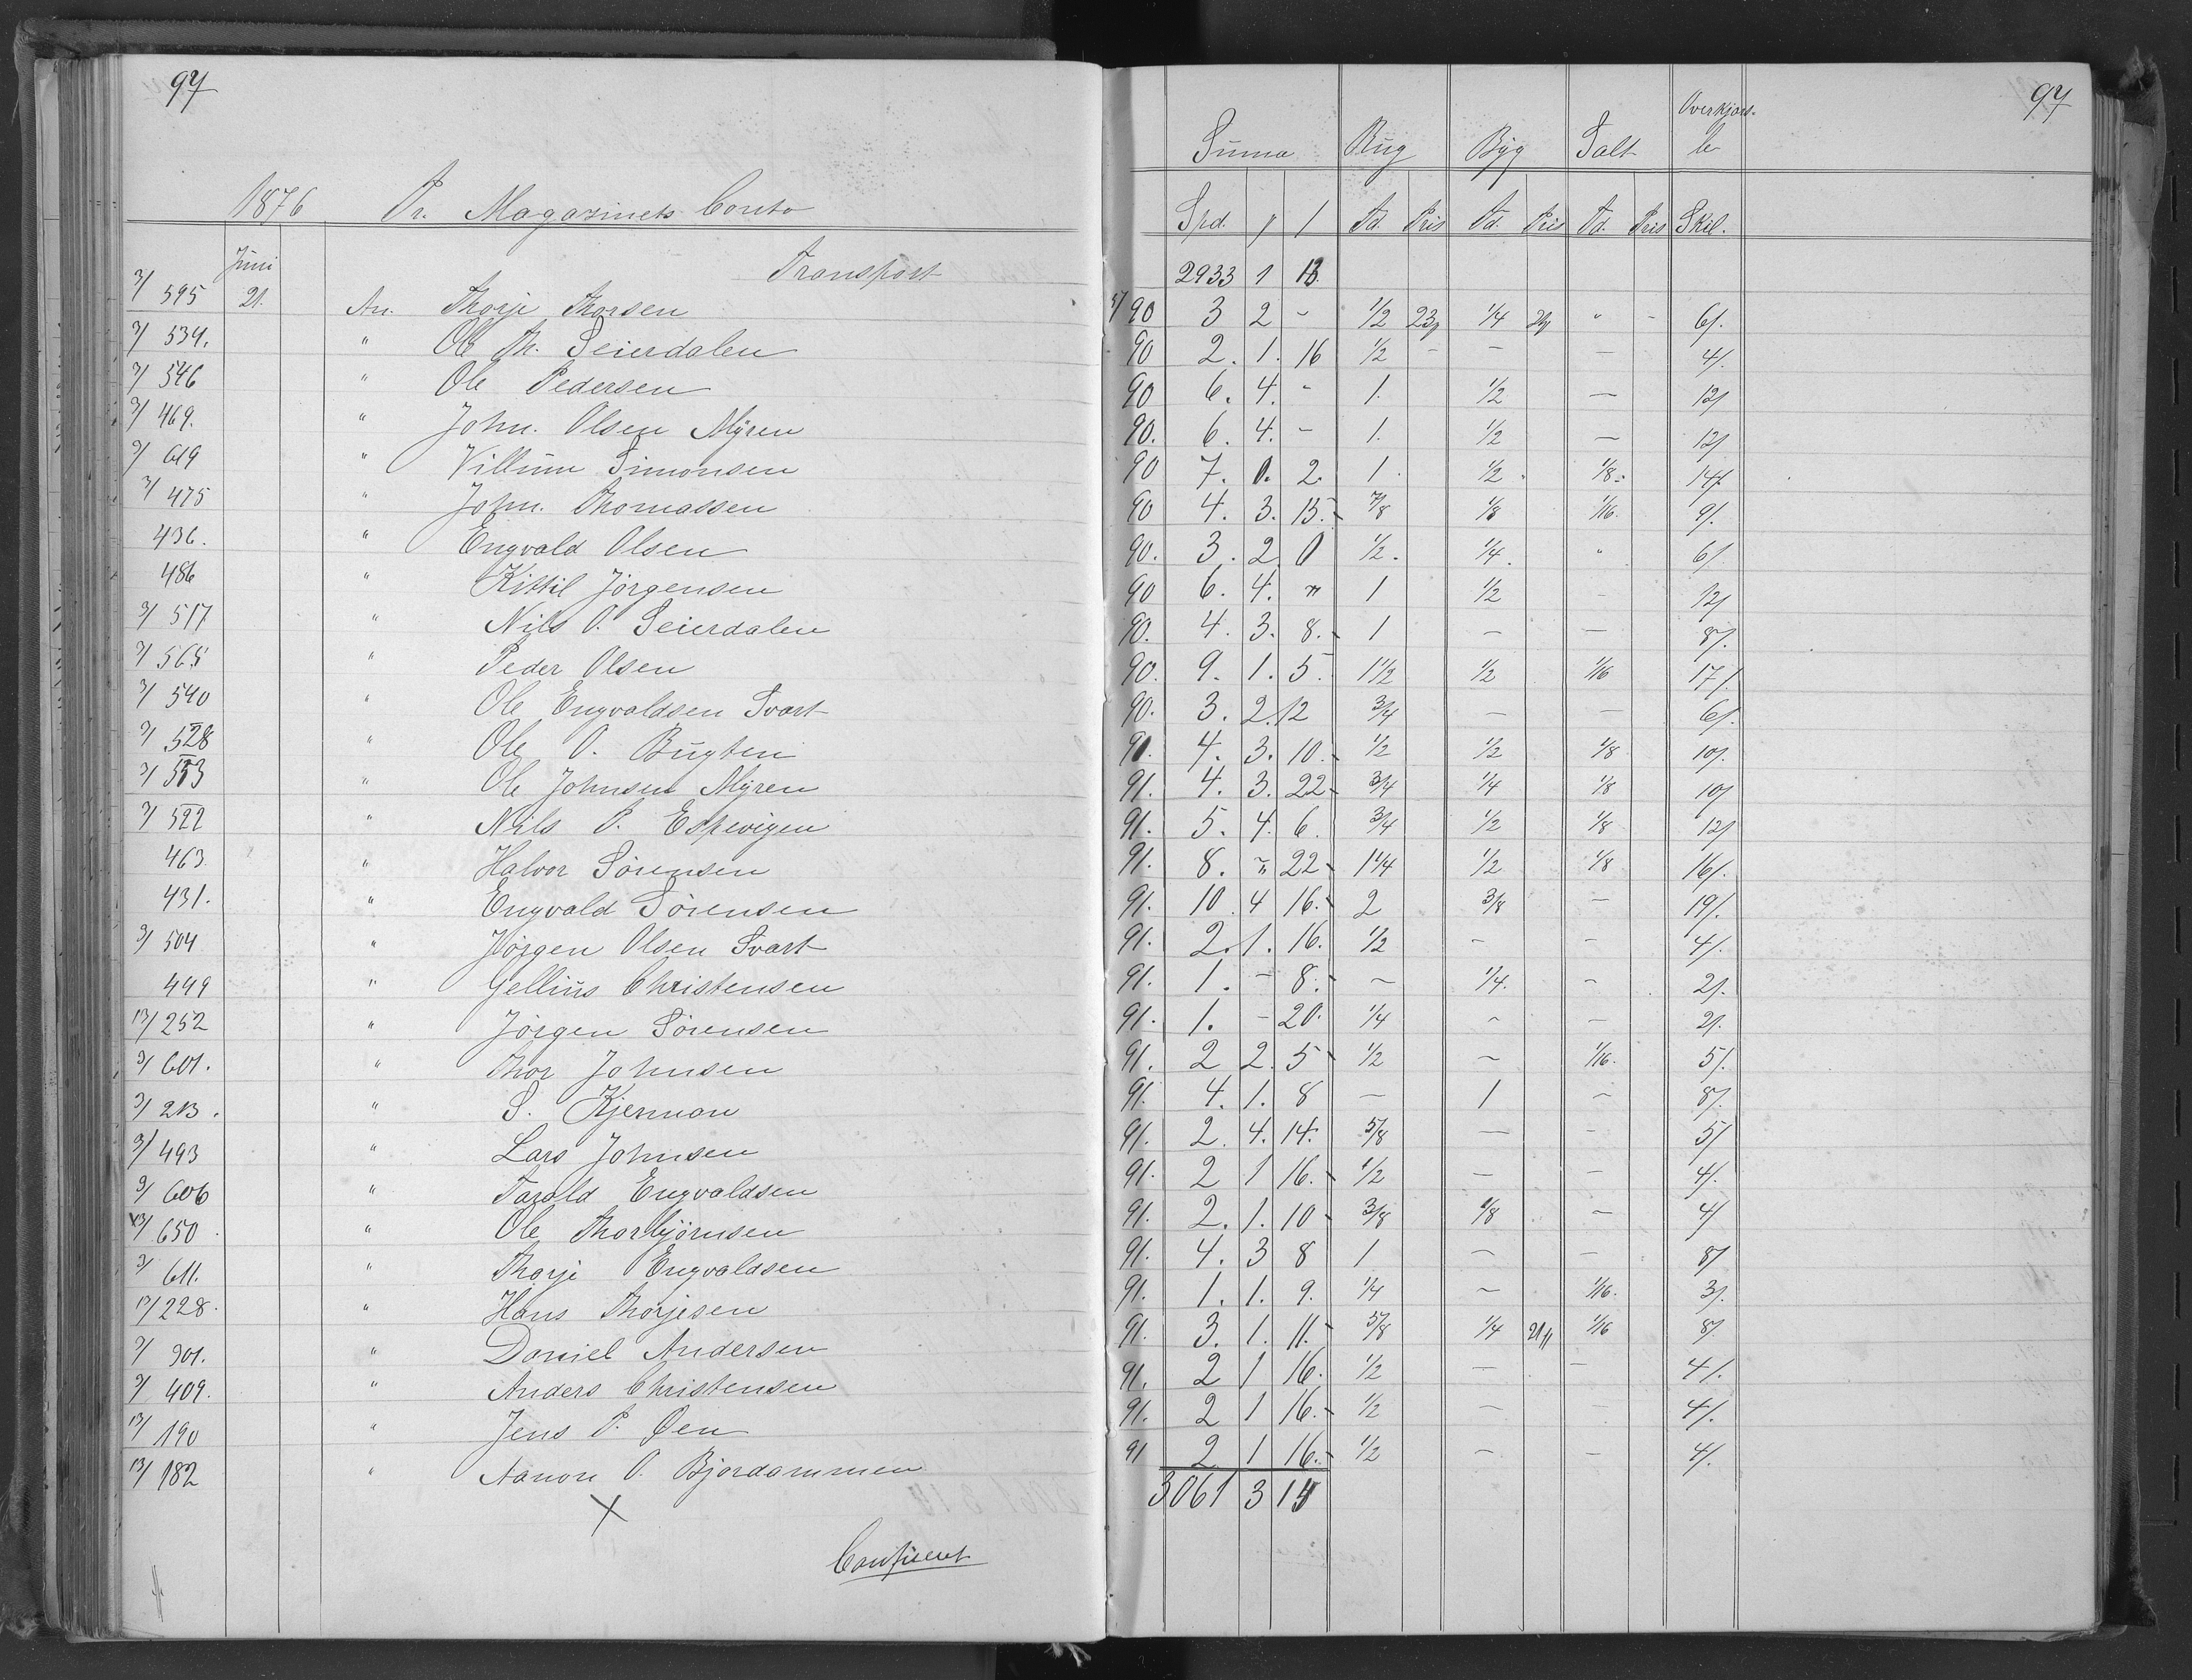 97
97
Suma Rug Byg Salt Overkjørs-
le
1876 Pr. Magazinets Conto Spd. Td. Pris Td. Pris Td. Pris Skil.
Juni Transport 2933 1 13.
3/ 595 21. An. Thorje Thorsen 90 3 2 - 1/2 23 1/4 " - 6/.
3/ 534. " Ole Th. Seierdalen 90 2. 1. 16 1/2 - - - 4/.
3/ 546 " Ole Pedersen 90 6. 4. - 1. 1/2 - 12/
3/ 469. " John. Olsen Myren 90. 6. 4. - 1. 1/2 - 12/
3/ 619 " Villum Simonsen 90 7. 0. 2. 1. 1/2. 1/8. 14/.
3/ 475 " John. Thomassen 90 4. 3. 15. 7/8 1/8 1/16. 9/.
436. " Engvald Olsen 90. 3. 2 0 1/2. 1/4. " 6/
486 " Kittil Jörgensen 90 6. 4. " 1 1/2 - 12/
3/ 517 " Nils O. Seierdalen 90. 4. 3. 8. 1 - - 8/.
3/ 565 " Peder Olsen 90. 9. 1. 5. 1 1/2 1/2 1/16 17/.
3/ 540 " Ole Engvaldsen Svart 90. 3. 2. 12 3/4 - - 6/.
3/ 528 " Ole O. Bugten 90. 4. 3. 10. 1/2 1/2 1/8 10/.
3/ 553 " Ole Johnsen Myren 91. 4. 3. 22 3/4 1/4 1/8 10/
3/ 522 " Nils P. Espevigen 91. 5. 4. 6. 3/4 1/2 1/8 12/
463. " Halvor Sörensen 91. 8. " 22 1 1/4 1/2 1/8 16/.
431. " Engvald Sörensen 91. 10. 4 16. 2 3/8 - 19/.
3/ 504 " Jörgen Olsen Svart 91. 2. 1. 16. 1/2 - - 4/.
449 " Gellius Christensen 91. 1. - 8. - 1/4. - 2/.
13/ 252 " Jörgen Sörensen 91. 1. - 20. 1/4 - - 2/.
3/ 601. " Thor Johnsen 91. 2 2. 5 1/2 - 1/16. 5/.
3/ 213. " S. Kjerman 91. 4. 1. 8 - 1 - 8/.
3/ 493 " Lars Johnsen 91. 2. 4. 14. 5/8 - - 5/
3/ 606 " Tarald Engvaldsen 91. 2 1 16. 1/2 - - 4/.
13/ 650. " Ole Thorbjörnsen 91. 2. 1. 10 3/8 1/8 - 4/
3/ 611. " Thorje Engvaldsen 91. 4. 3 8 1 - - 8/
13/ 228. " Hans Thorjesen 91. 1. 1. 9. 1/4 - 1/16. 3/.
3/ 901. " Daniel Andersen 91. 3. 1. 11. 5/8 1/4 21 1/16 8/.
3/ 409. " Anders Christensen 91. 2 1 16. 1/2 - - 4/.
13/ 190 " Jens P. Øen 91. 2 1 16. 1/2 - - 4/.
13/ 182 " Aanon O. Bjordammen 91 2 1 16. 1/2 - - 4/.
3061 3 14